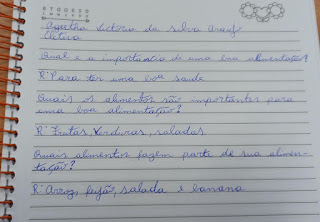 Agatha Victoria da Silva Araujo
Eletiva
Qual é a importancia de uma boa alimentação?
R: Para ter uma boa saude
Quais os alimentos são importantes para
uma boa alimentação?
R: Frutas, Verduras, saladas
Quais alimentos fazem parte de sua alimen-
tação?
R: Arroz, feijão, salada e banana